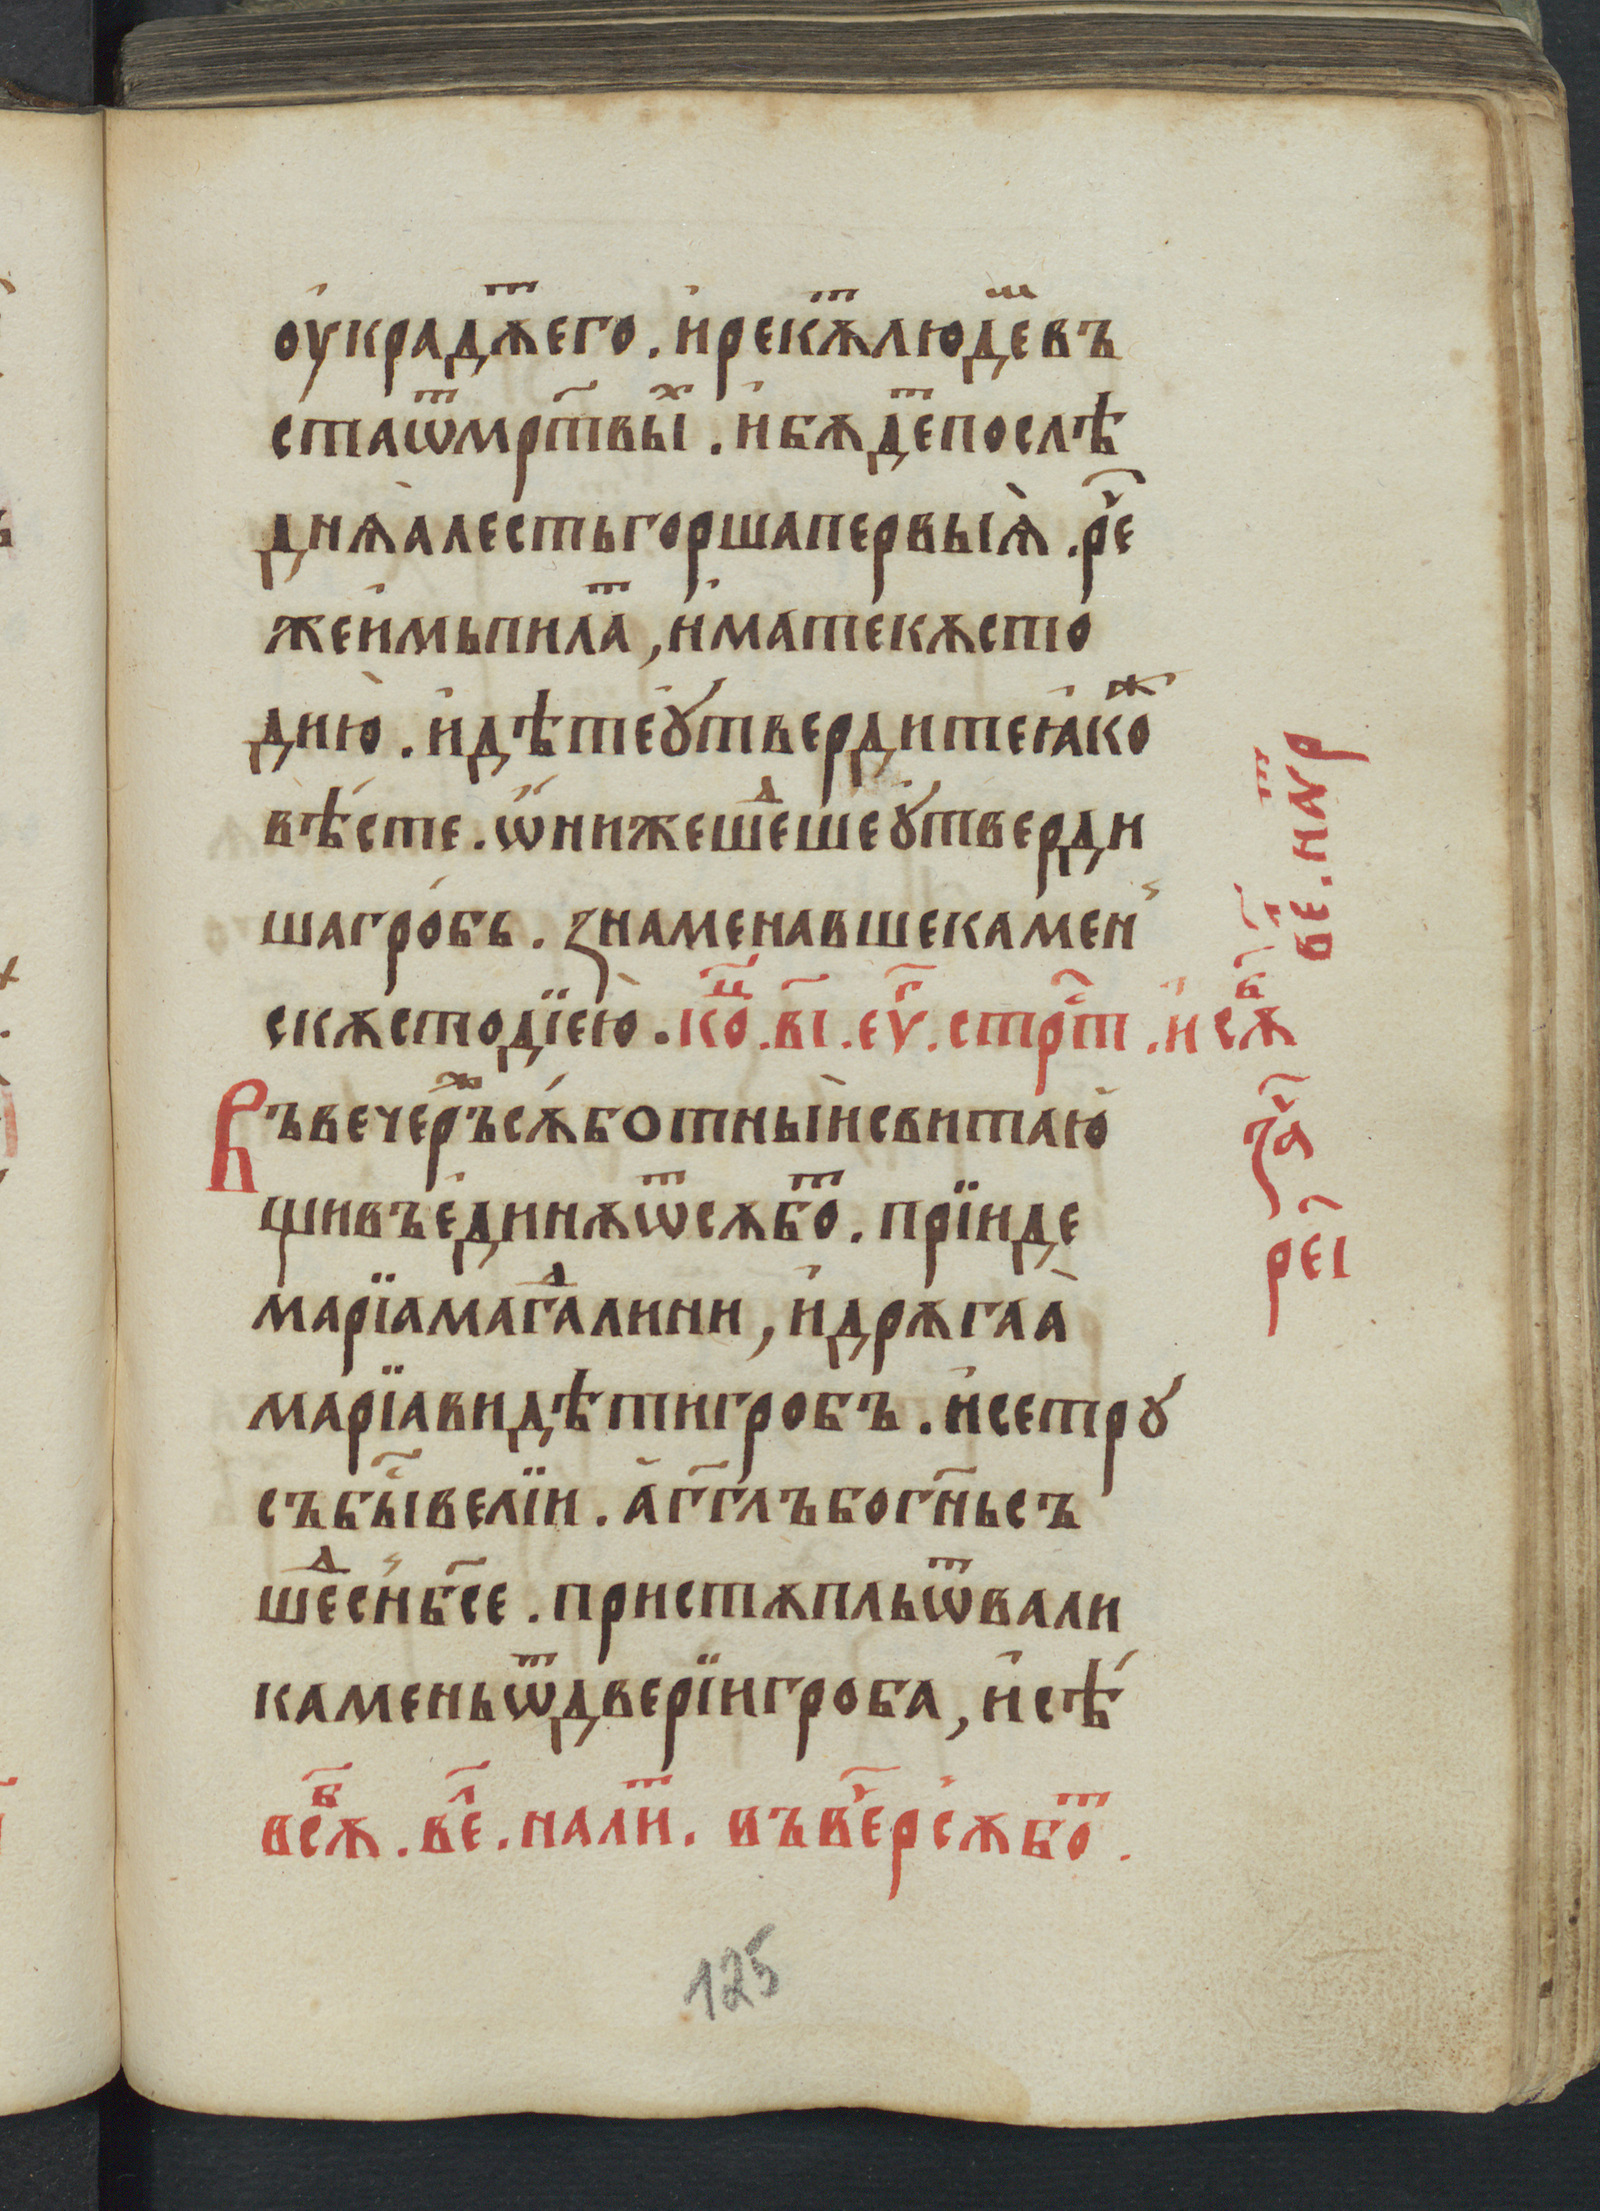 оукрадꙋⷮего. и҆рекꙋⷮлюдеⷨвъ
стаѿмр҃твыⷯ. и҆бѫдеⷮпослѣ
днѧѧлестьгоршапервыѧ. ре҃ч
жеи҆мьпилаⷮ, и҆матекѫсто
дию. и҆дѣтеꙋтвердитеꙗ҆коⷤ
вѣсте. ѡ҆нижешеⷣшеꙋтверди
шагробь. знаменавшекамен
скѫстодїею. коⷰ. в҃і. еѵⷢ. стрⷭт. и҆сѫⷠ
Въвечерⷤъсѫботныи҆свитаю
щивъединѫѿсѫбоⷮ. прїиде
марїамагⷣалини, и҆дрѫгаа
марїавидѣтигробъ. и҆сетрꙋ
събыⷭвелїи. а҆гг҃лъбог҃ньсъ
шеⷣсн҃бсе. пристѫпльѿвали
каменьѿдверїигроба, и҆сѣ
всѫⷠ. веⷧ. налиⷮ. въвеⷱрсѫбоⷮ.
125